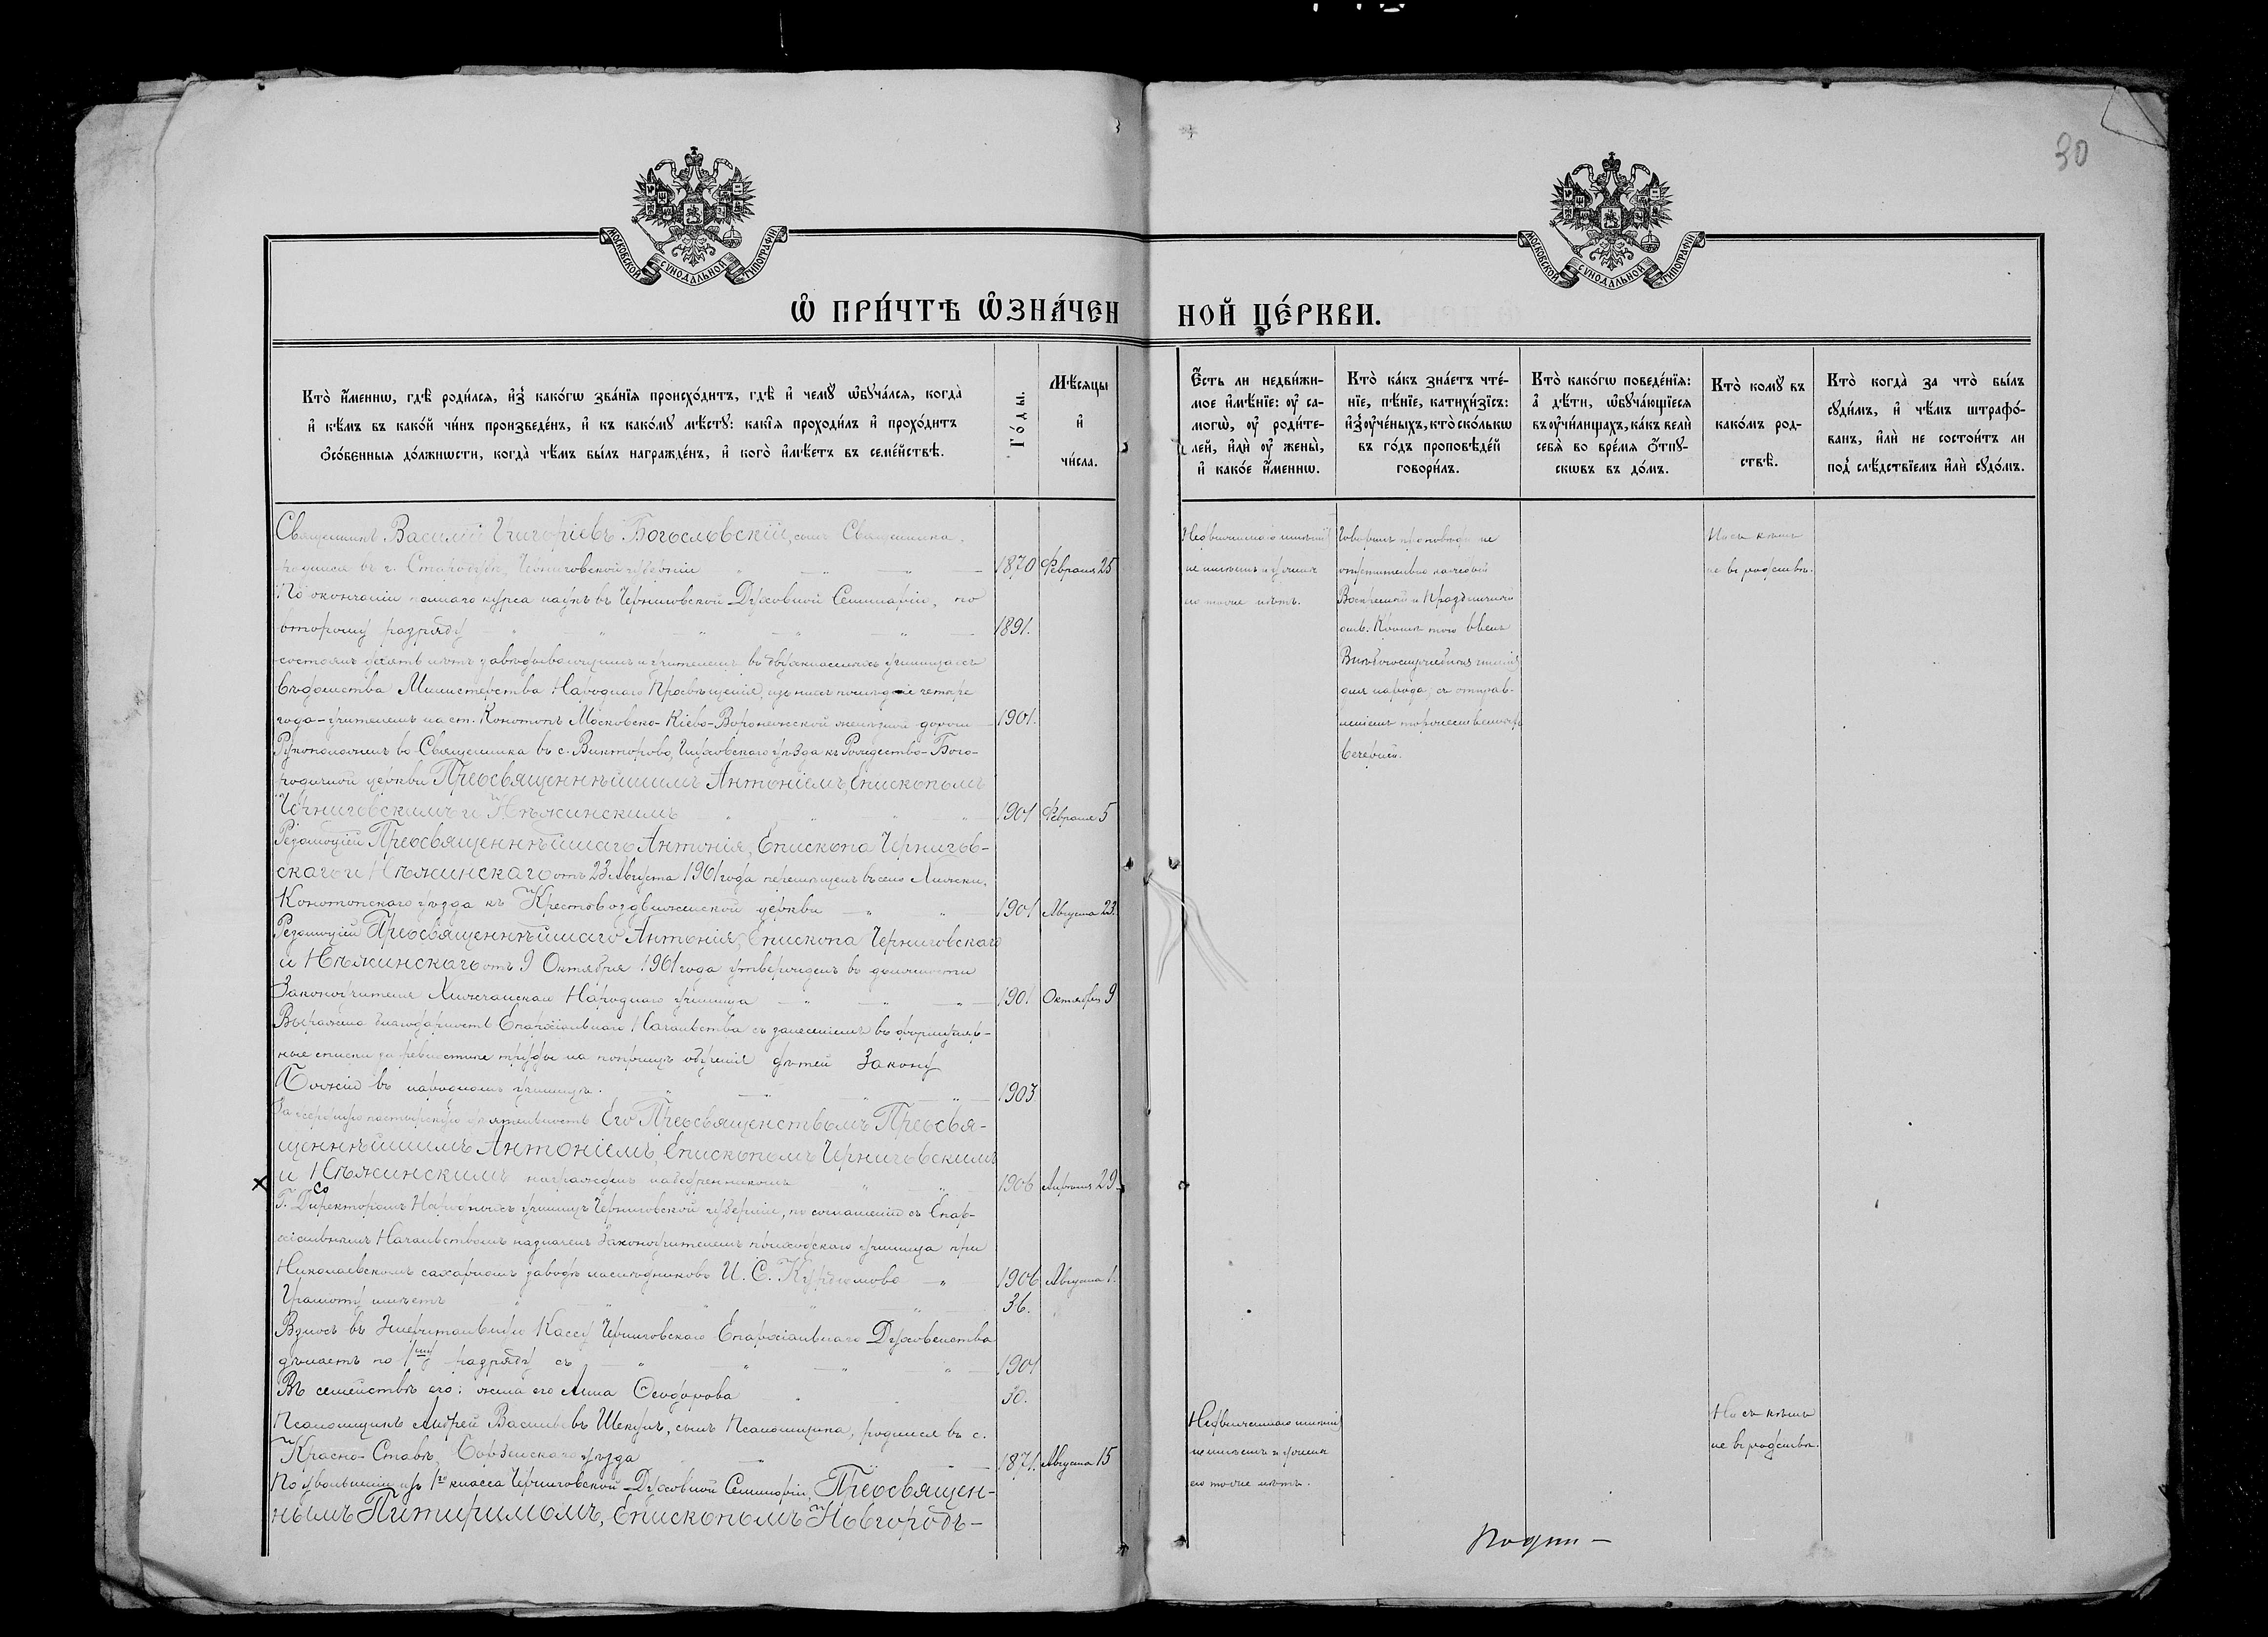 30
МОСКОВСКОЙ СѴНОДАЛЬНОЙ ТИПОГРАФІИ
МОСКОВСКОЙ СѴНОДАЛЬНОЙ ТИПОГРАФІИ
Ѽ ПРИ́ЧТѢ Ѡ҆ЗНА́ЧЕН НОЙ ЦЕ́РКВИ.
Кто̀ и҆́менно, гдѣ̀ роди́лся, и҆з̾ како́гѡ зва́нїя происхо́дитъ, гдѣ̀ и҆ чемꙋ̀ ѡ҆бꙋча́лся, когда̀
и҆ кѣ́мъ въ како́й чи́нъ произведе́нъ, и҆ къ како́мꙋ мѣ́стꙋ: какі́я проходи́лъ и҆ прохо́дитъ
ѻ҆со́бенныя до́лжности, когда̀ чѣ́мъ бы́лъ награжде́нъ, и҆ кого̀ и҆мѣ́етъ въ семе́йствѣ.
Го́ды.
Мѣ́сяцы
и҆
чи́сла.
Є҆́сть ли недви́жи-
мое и҆мѣ́нїе: ᲂу҆ са-
могѡ̀, ᲂу҆ роди́те-
лей, и҆лѝ ᲂу҆ жены̀,
и҆ како́е и҆́менно.
Кто̀ ка́къ зна́етъ чте́-
нїе, пѣ́нїе, катихи́зїсъ:
и҆з̾ ᲂу҆че́ныхъ, кто̀ ско́лькѡ
въ го́дъ проповѣ́дей
говори́лъ.
Кто̀ како́гѡ поведе́нїя:
а҆ дѣ́ти, ѡ҆бꙋча́ющїеся
въ ᲂу҆чи́лищахъ, ка́къ велѝ
себя̀ во вре́мя ѿпꙋ-
сковъ въ до́мъ.
Кто̀ комꙋ̀ въ
како́мъ род-
ствѣ̀.
Кто̀ когда̀ за что̀ бы́лъ
сꙋди́мъ, и҆ чѣ́мъ штрафо́-
ванъ, и҆лѝ не состои́тъ ли
под̾ слѣ́дствїемъ и҆лѝ сꙋдо́мъ.
Священникъ Василій Григоріевъ Богословскій, сынъ Священника,
родился въ г. Стародубѣ, Черниговской губерніи 1870 Февраля 25
По окончаніи полнаго курса наукъ въ Черниговской Духовной Семинаріи, по
второму разряду 1891.
состоялъ десять лѣтъ завѣдывающимъ и учителемъ въ двухклассныхъ училищахъ
вѣдомства Министерства Народнаго Просвѣщенія, изъ нихъ послѣдніе четыре
года - учителемъ на ст. Конотопъ Московско-Кіево-Воронежской желѣзной дороги 1901.
Рукоположенъ во Священника въ с. Викторово, Глуховскаго уѣзда къ Рождество-Бого-
родичной церкви Преосвященнѣйшимъ Антоніемъ, Епископомъ
Черниговскимъ и Нѣжинскимъ 1901 Февраля 5
Резолюціей Преосвященнѣйшаго Антонія, Епископа Черниговъ-
скаго и Нѣжинскаго отъ 23 Августа 1901 года перемѣщенъ въ село Хижки,
Конотопскаго уѣзда къ Крестовоздвиженской церкви 1901 Августа 23.
Резолюціей Преосвященнѣйшаго Антонія, Епископа Черниговскаго
и Нѣжинскаго отъ 9 Октября 1901 года утвержденъ въ должности
Законоучителя Хижчанскаго Народнаго училища 1901 Октября 9
Выражена благодарность Епархіальнаго Начальства съ занесеніемъ въ формуляр-
ные списки за ревностные труды на поприщѣ обученія дѣтей Закону
Божію въ народномъ училищѣ. 1903
За усердную пастырскую дѣятельность Его Преосвященствомъ Преосвя-
щеннѣйшимъ Антоніемъ, Епископомъ Черниговскимъ
и Нѣжинскимъ награжденъ набедренникомъ 1906 Апрѣля 29
Г. Директоромъ Народныхъ училищъ Черниговской губерніи, по соглашенію съ Епар-
хіальнымъ Начальствомъ назначенъ Законоучителемъ приходскаго училища при
Николаевскомъ сахарномъ заводѣ наслѣдниковъ И. С. 1906 Августа 1.
Грамоту имѣетъ 36.
Взносъ въ Эмеритальную Кассу Черниговскаго Епархіальнаго Духовенства
дѣлаетъ по 1му разряду съ 1901
Въ семействѣ его: жена его Анна Ѳеодорова 30.
Псаломщикъ Андрей Васильевъ Шекунъ, сынъ Псаломщика, родился въ с.
Красно-Ставѣ, Борзенскаго уѣзда 1871. Августа 15
По увольненіи изъ 1го класса Черниговской Духовной Семинаріи, Преосвящен-
нымъ Питиримомъ, Епископомъ Новгородъ-
Недвижимаго имѣнія
не имѣетъ и у жены
его тоже нѣтъ.
Говоритъ проповѣди не
отступительно каждый
Воскресный и Праздничный
день. Кромѣ того велъ
Внѣбогослужебныя чтенія
для народа, съ отправ-
леніемъ торжественной
вечерни.
Ни съ кѣмъ
не въ родствѣ.
Недвижимаго имѣнія
не имѣетъ и у жены
его тоже нѣтъ.
Ни съ кѣмъ
не въ родствѣ.